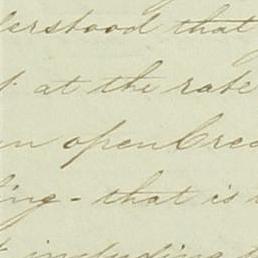 derstood that
at the rate
an open Crea
ing - that is
including